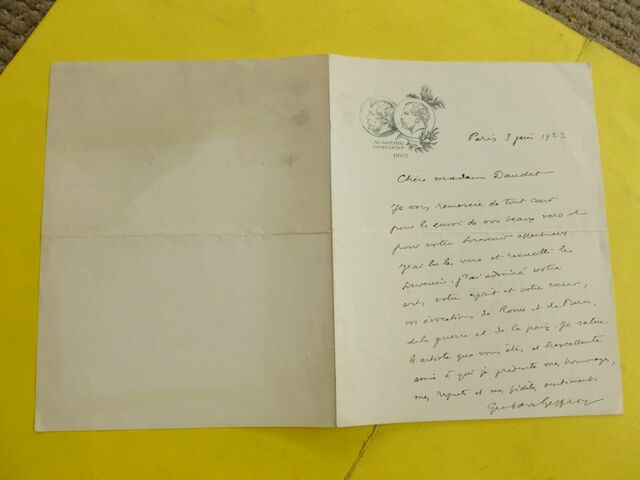 ACADÉMIE
GONCOURT
1903
Paris 3 juin 1923
Chère madame Daudet
Je vous remercie de tout cœur
pour le envoi de vos beaux vers et
pour votre souvenir affectueux
J'ai lu les vers et recueilli les
souvenirs. J'ai admiré votre
art, votre esprit et votre cœur,
vos évocations de Rome et de Paris,
de la guerre et de la paix. Je salue
l'artiste que vous êtes, et l'excellente
amie à qui je présente mes hommages,
mes respects et mes fidèles sentiments
Gustave Geffroy